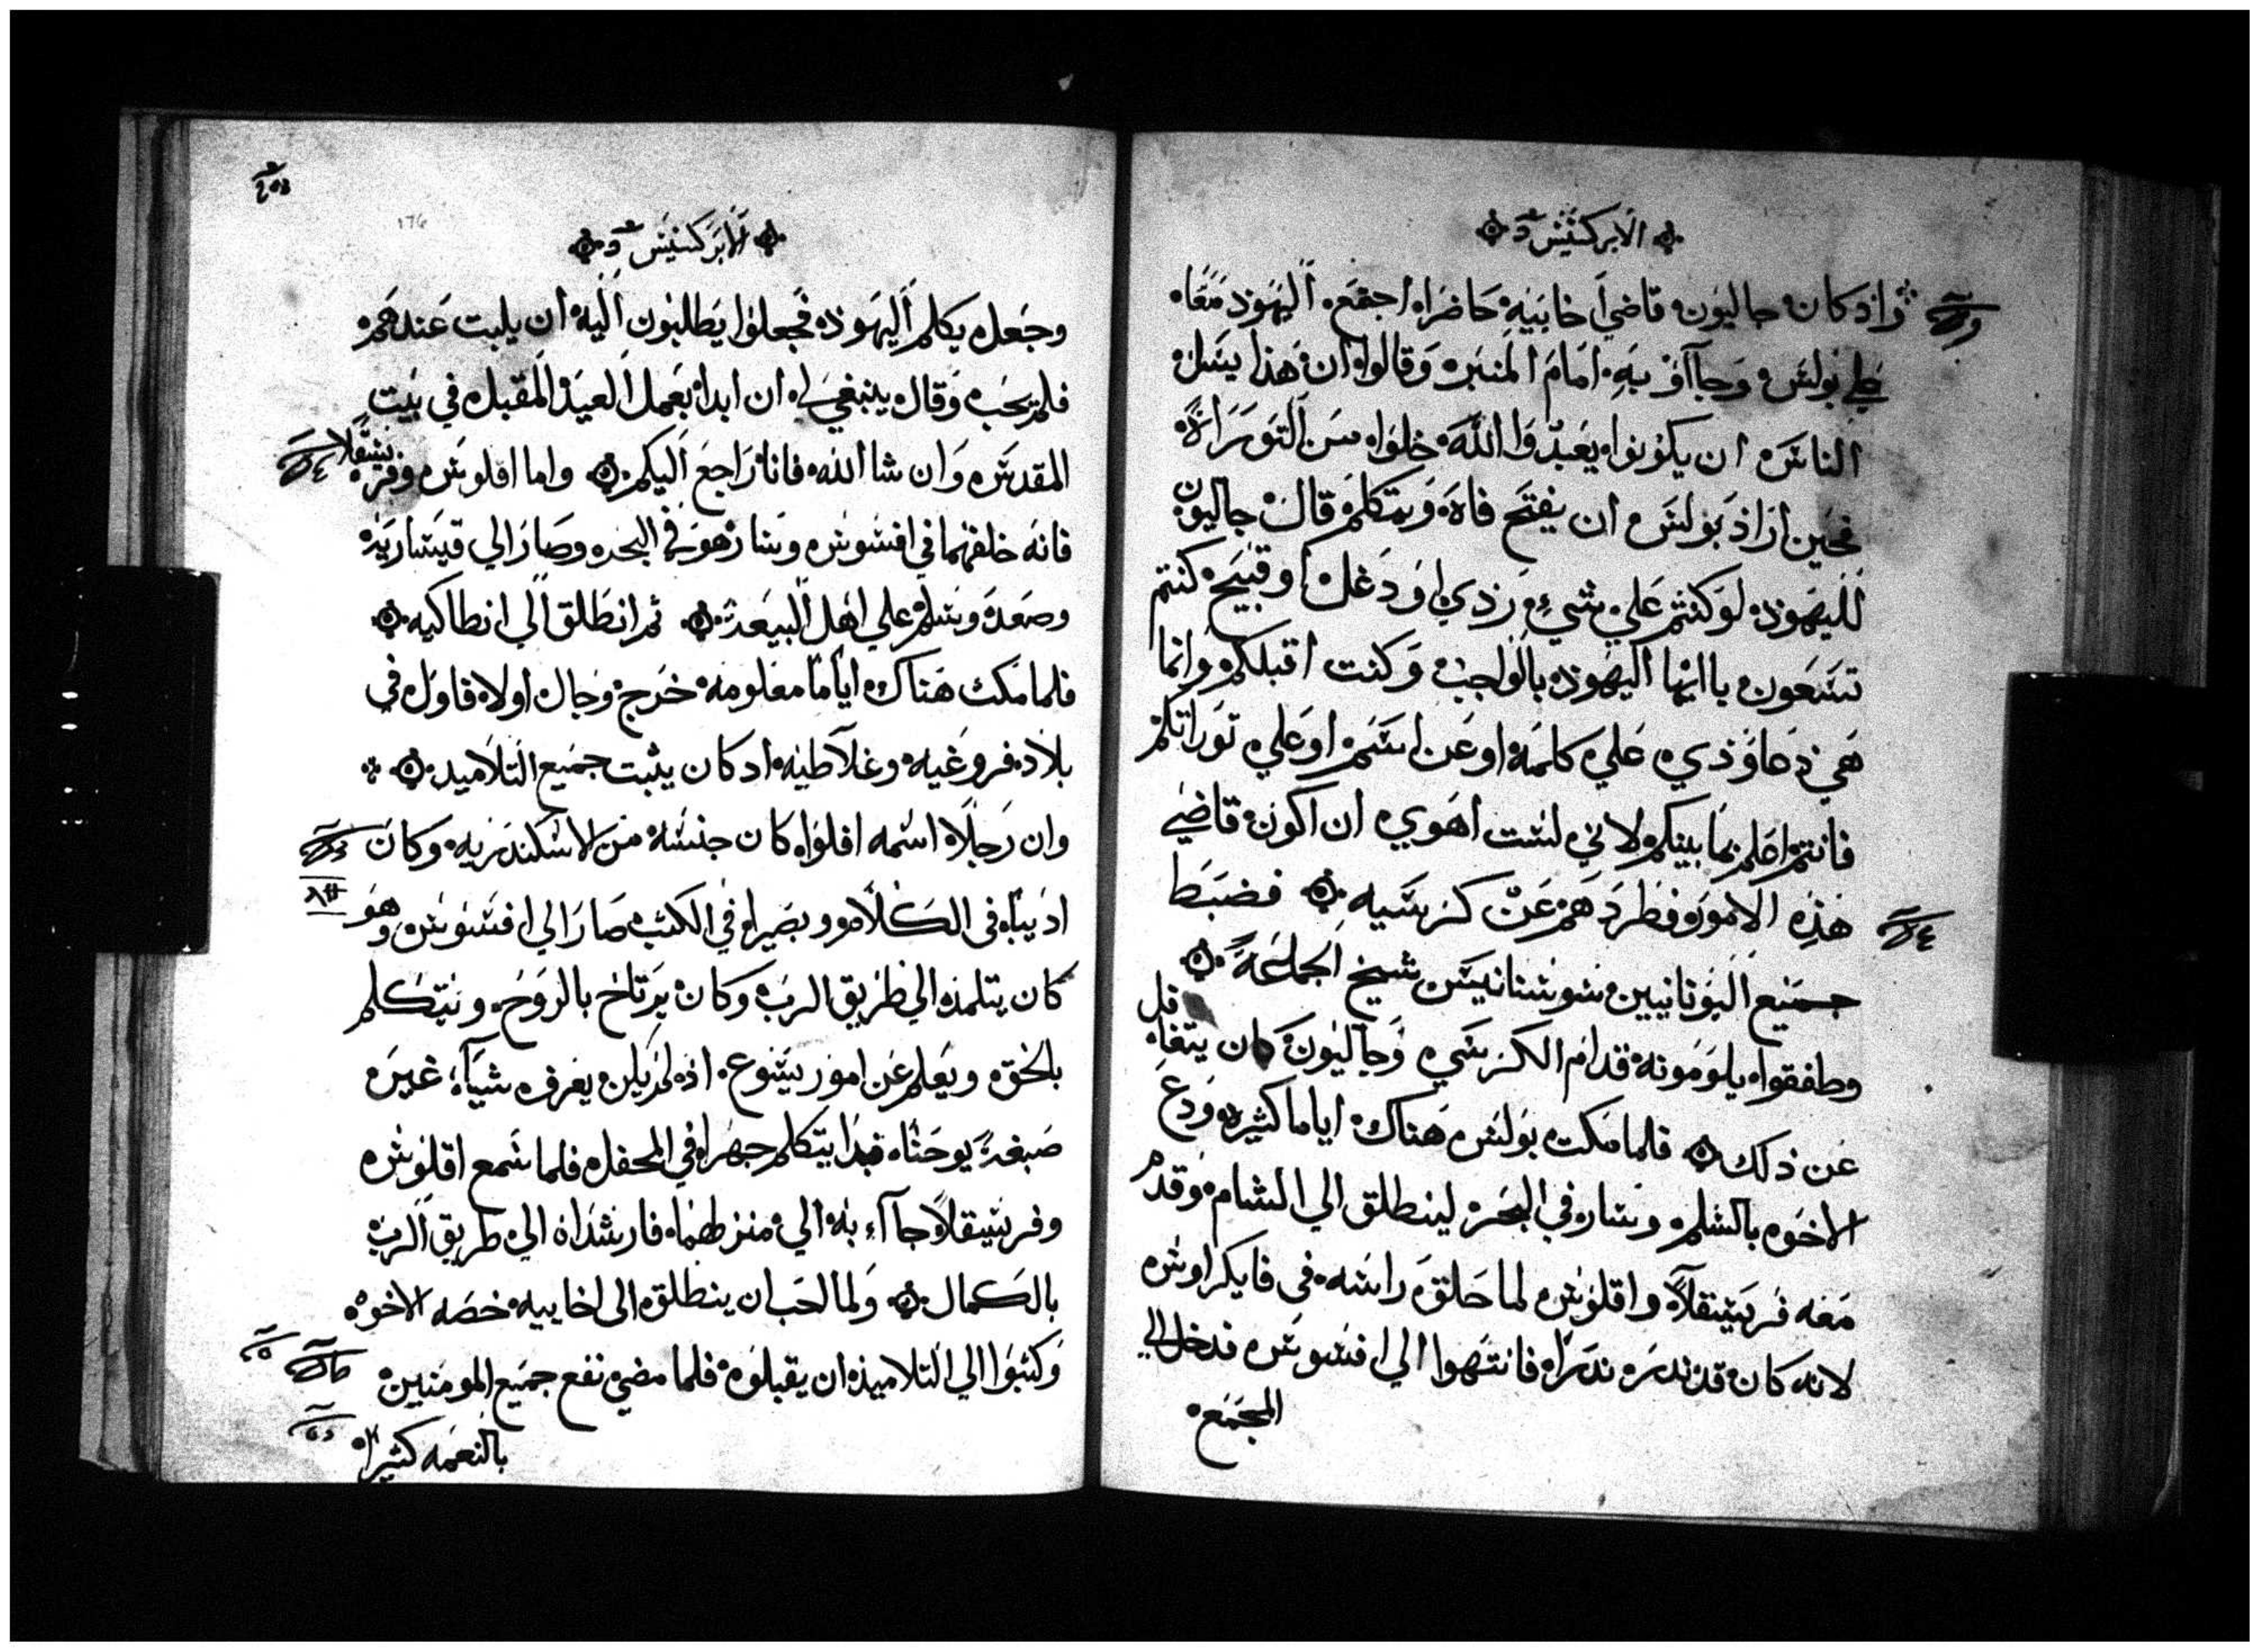 الابركسيس
واذ كان جاليون قاضي اخاييه حاضرا اجتمع اليهود معا
علي بولس وجااو به امام المنبر وقالوا ان هذا يسل
الناس ان يكونوا يعبدوا الله خلوا من التوراة
فحين اراد بولس ان يفتح فاه ويتكلم قال جاليون
لليهود لو كنتم علي شيء ردي او دغل او قبيح كنتم
تسعون يا ايها اليهود بالواجب وكنت اقبلكم وانما
هي دعاوي علي كلمه او عن اسم او علي توراتكم
فانتم اعلم بما بينكم لاني لست اهوي ان اكون قاضي
هذه الامور فطردهم عن كرسيه فضبط
جميع اليونانيين سوستانيس شيخ الجماعة
وطفقوا يلومونه قدام الكرسي وجاليون كان يتغافل
عن ذلك فلما مكت بولس هناك اياما كثيره ودع
الاخوه بالسلم وسار في البحر لينطلق الي الشام وقدم
معه فريسقلا واقلوس لما حلق راسه في فايكراوس
لانه كان قد ندر ندرا فانتهوا الي افسوس فدخل الي
المجمع
الابركسيس
176
وجعل يكلم اليهود فجعلوا يطلبون اليه ان يلبت عندهم
فلم يحب وقال ينبغي لي ان ابدا بعمل العيد المقبل في بيت
المقدس وان شا الله فانا راجع اليكم واما اقلوس وفريسقلا
فانه خلفهما في افسوس وسار هو في البحر وصار الي قيساريه
وصعد وسلم علي اهل البيعة ثم انطلق الي انطاكيه
فلما مكث هناك اياما معلومه خرج وجال اولا فاول في
بلاد فروغيه وغلاطيه اد كان يثبت جميع التلاميد
وان رجلا اسمه افلوا كان جنسه من الاسكندريه وكان
اديبا في الكلام وبصيرا في الكتب صار الي افسوس وهو
كان يتلمذ الي طريق الرب وكان يرتاح بالروح ويتكلم
بالحق ويعلم عن امور يسوع اذ لم يكن يعرف شياء غير
صبغة يوحنا فبدا يتكلم جهرا في المحفل فلما سمع اقلوس
وفريسقلا جااء به الي منزلهما فارشداه الي طريق الرب
بالكمال ولما احب ان ينطلق الي اخاييه خصه الاخوه
وكتبوا الي التلاميذ ان يقبلوه فلما مضي نفع جميع المومنين
بالنعمه كثيرا